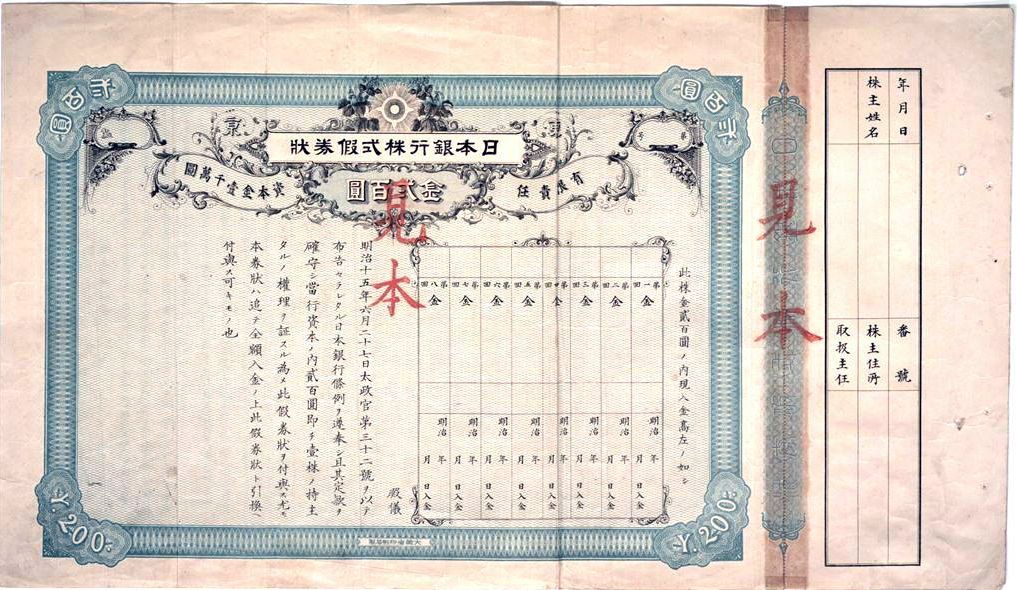 年月日
株主姓名
番號
株主住所
取扱主任
見本
貳百圓
貳百圓
日本銀行株式假券狀
有限責任
金貳百圓
資本金壹千萬圓
見本
此株金貳百圓ノ内現入金高左ノ如シ
第一回 金 明治 年 月 日入金
第二回 金 明治 年 月 日入金
第三回 金 明治 年 月 日入金
第四回 金 明治 年 月 日入金
第五回 金 明治 年 月 日入金
第六回 金 明治 年 月 日入金
第七回 金 明治 年 月 日入金
第八回 金 明治 年 月 日入金
殿儀
明治十五年六月二十七日太政官第三十二號ヲ以テ
布告セラレタル日本銀行條例ヲ遵奉シ且其定款ヲ
確守シ當行資本ノ内貳百圓即チ壹株ノ持主
タルノ權理ヲ証スル為メ此假券狀ヲ付與ス尤モ
本券狀ハ追テ全額入金ノ上此假券狀ト引換ヘ
付與ス可キモノ也
大200.
大200.
大藏省印刷局製